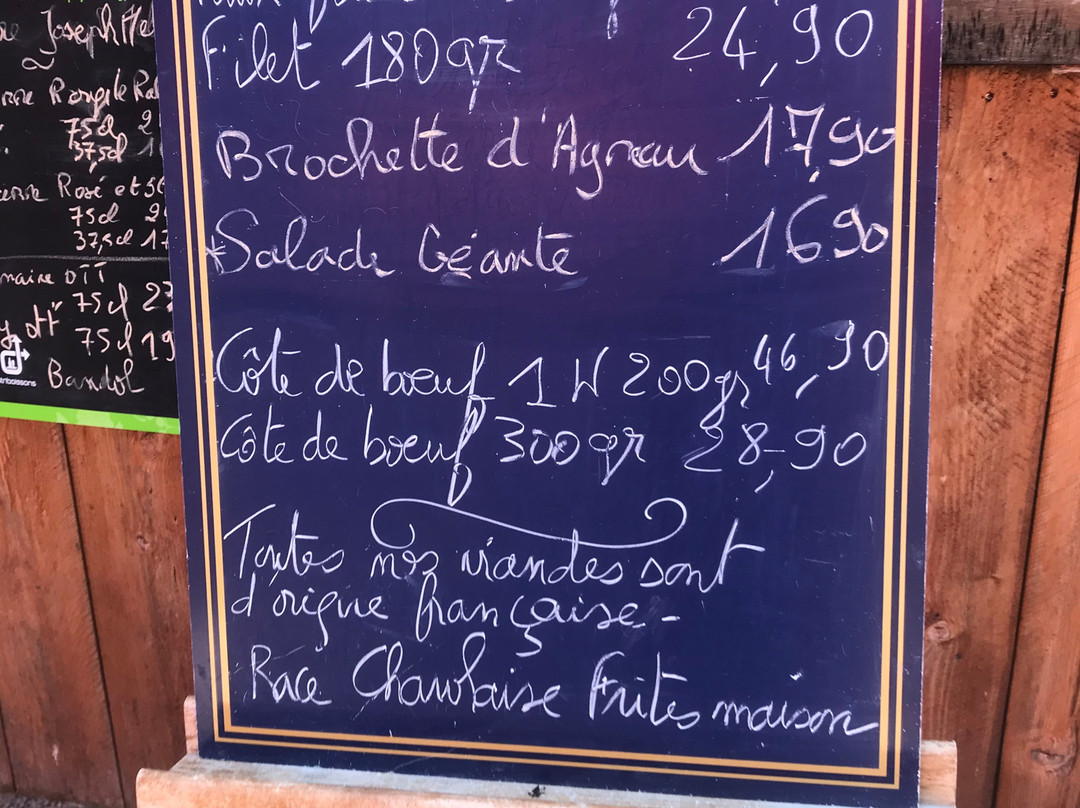 Joseph Mel
75cl 2
37,5cl 1
Rosé et
75cl 2
37,5cl 17
maine OTT
75cl 23
75cl 19
Bandol
Filet 180gr 24,90
Brochette d'Agneau 17,90
*Salade Géante 1690
Côte de bœuf 1 K 200gr 46,90
Côte de bœuf 300gr 28,90
Toutes nos viandes sont
d'origine française -
Race Charolaise Frites maison